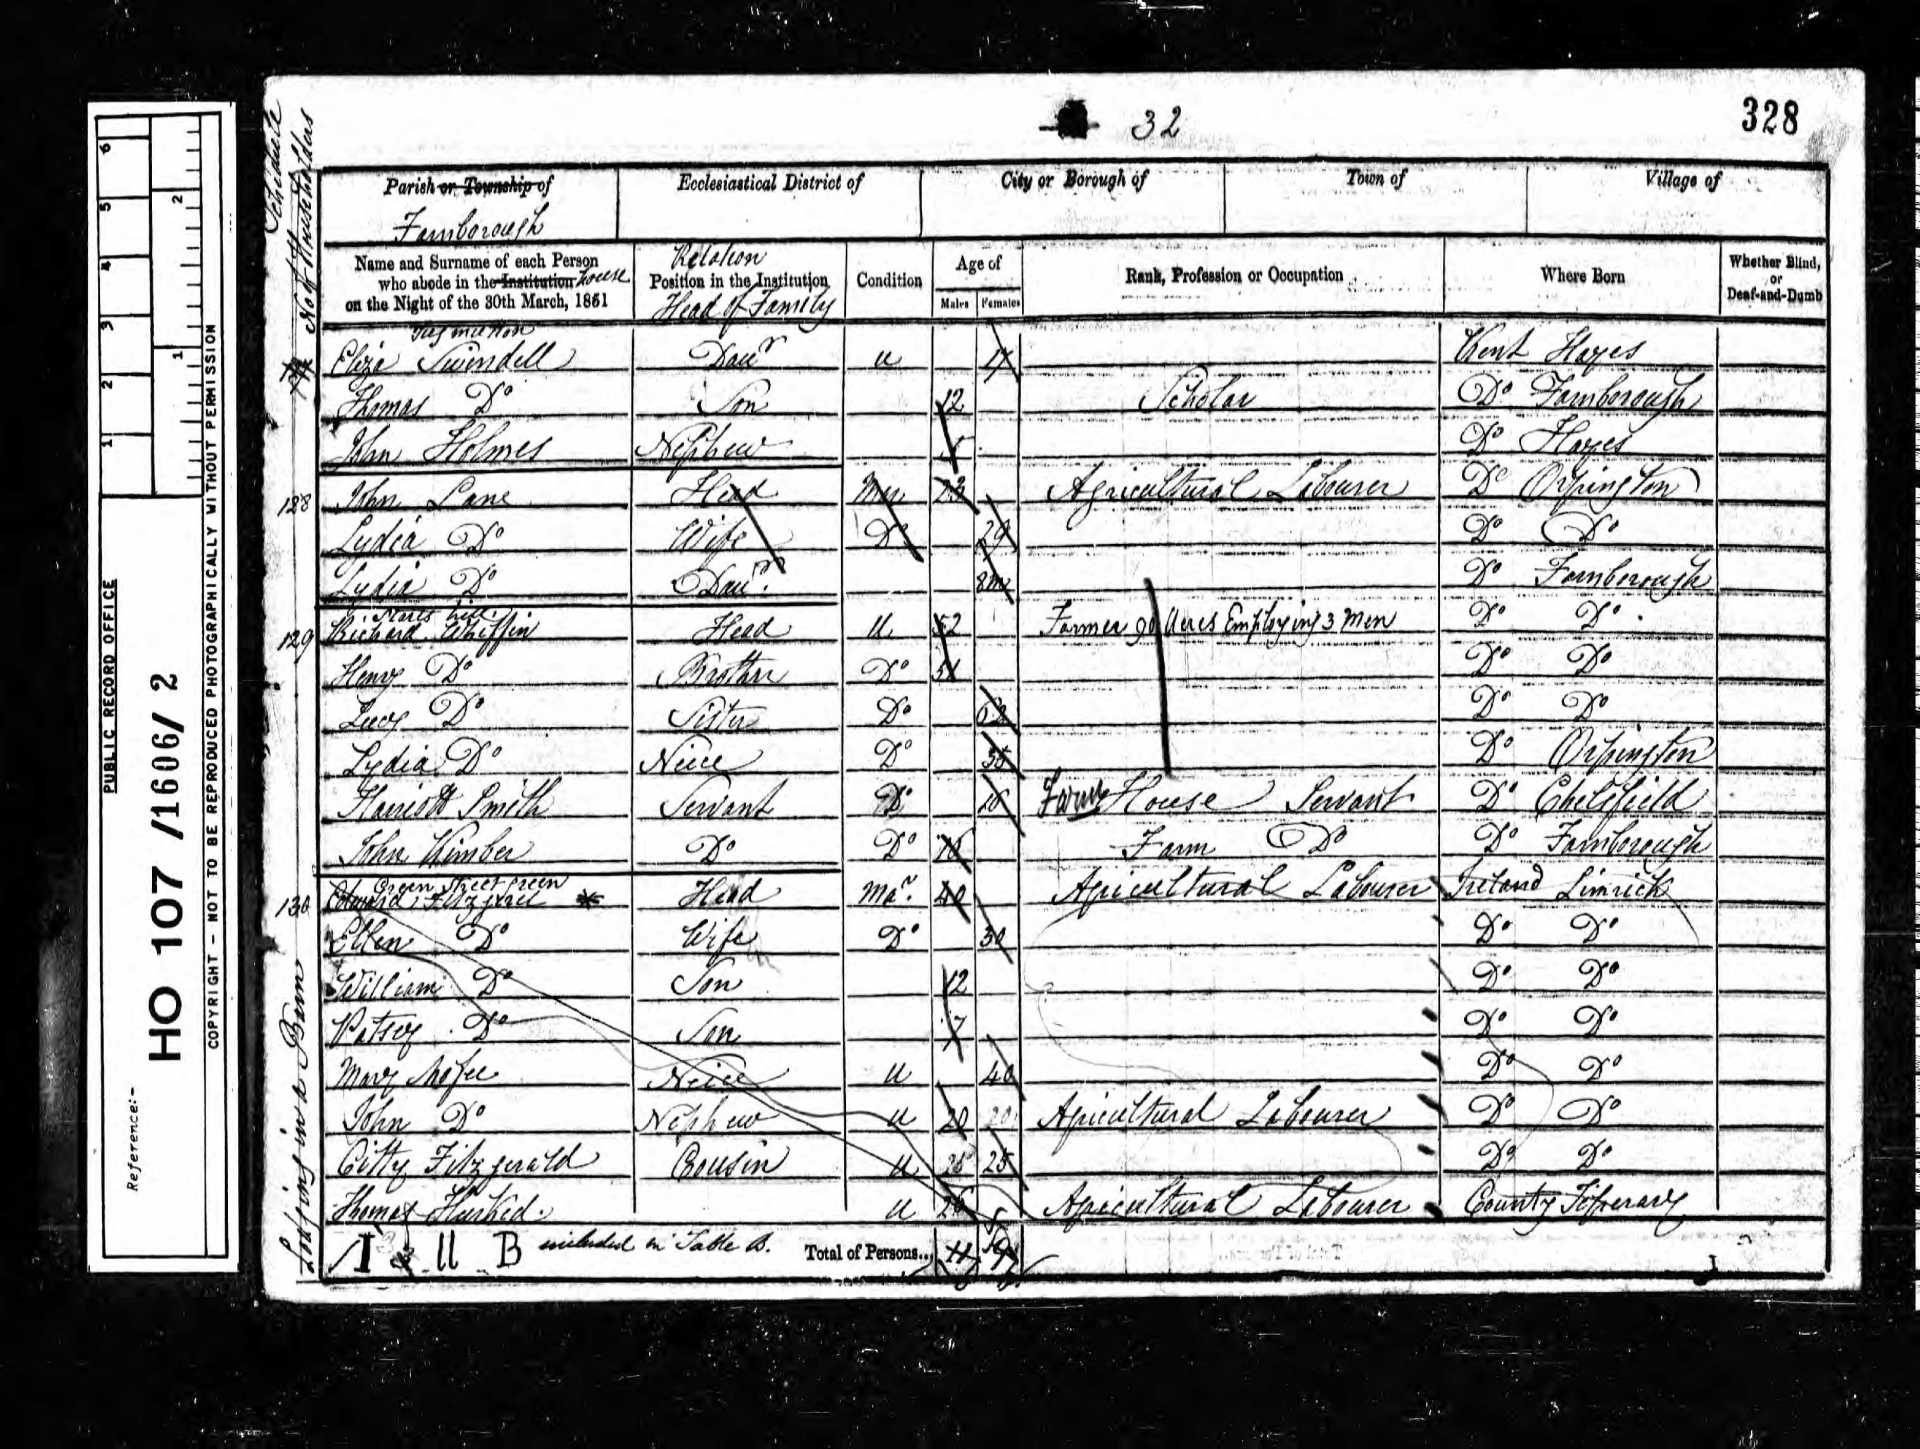 32
328
Schedule
Not Householders
Parish or Township of
Ecclesiastical District of
City or Borough of
Town of
Village of
Farnborough
Name and Surname of each Person who abode in the Institution house on the Night of the 30th March, 1851
Relation
Position in the Institution
Head of Family
Condition
Age of
Males
Females
Rank, Profession or Occupation
Where Born
Whether Blind, or Deaf-and-Dumb
Eliza Swindell Daur U Kent Hayes
Thomas Do Son 12 Scholar Do Farnborough
John Holmes Nephew Do Hayes
128 John Lane Head Mar Agricultural Labourer Do Orpington
Lydia Do Wife Do 29 Do Do
Lydia Do Daur. 8m Do Farnborough
129 Richard Whiffin Head U 52 Farmer 90 Acres Employing 3 Men Do Do
Henry Do Brother Do Do Do
Lucy Do Sister Do 62 Do Do
Lydia Do Niece Do 35 Do Orpington
Harriott Smith Servant Do Farm House Servant Do Chelsfield
John Kimber Do Do 18 Farm Do Do Farnborough
Green Street green
130 Edward Head Mar. 40 Agricultural Labourer Ireland Limrick
Ellen Do Wife Do 30 Do Do
William Do Son 12 Do Do
Patsey Do Son 7 Do Do
Mary Neice U 40 Do Do
John Do Nephew U 20 20 Agricultural Labourer Do Do
Citty Fitzgerald Cousin U 25 25 Do Do
Thomas U 26 Agricultural Labourer County Tiperary
Lodging in a Barn
1 I 11 B included in Table B. Total of Persons... 11 9
PUBLIC RECORD OFFICE
1 2 3 4 5 6
1 2
Reference:-
HO 107 /1606/ 2
COPYRIGHT - NOT TO BE REPRODUCED PHOTOGRAPHICALLY WITHOUT PERMISSION